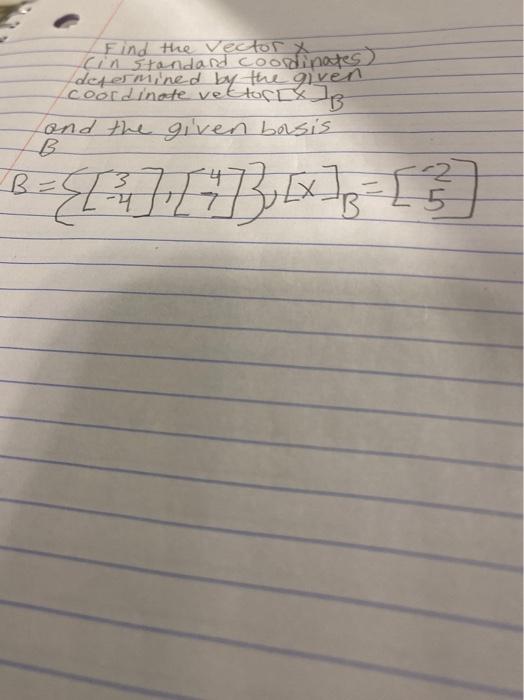 Find the Vector x
(in standard coordinates)
determined by the given
coordinate vector [x]B
and the given basis
B
B = {[3 -4], [4 7]}, [x]B = [-2 5]